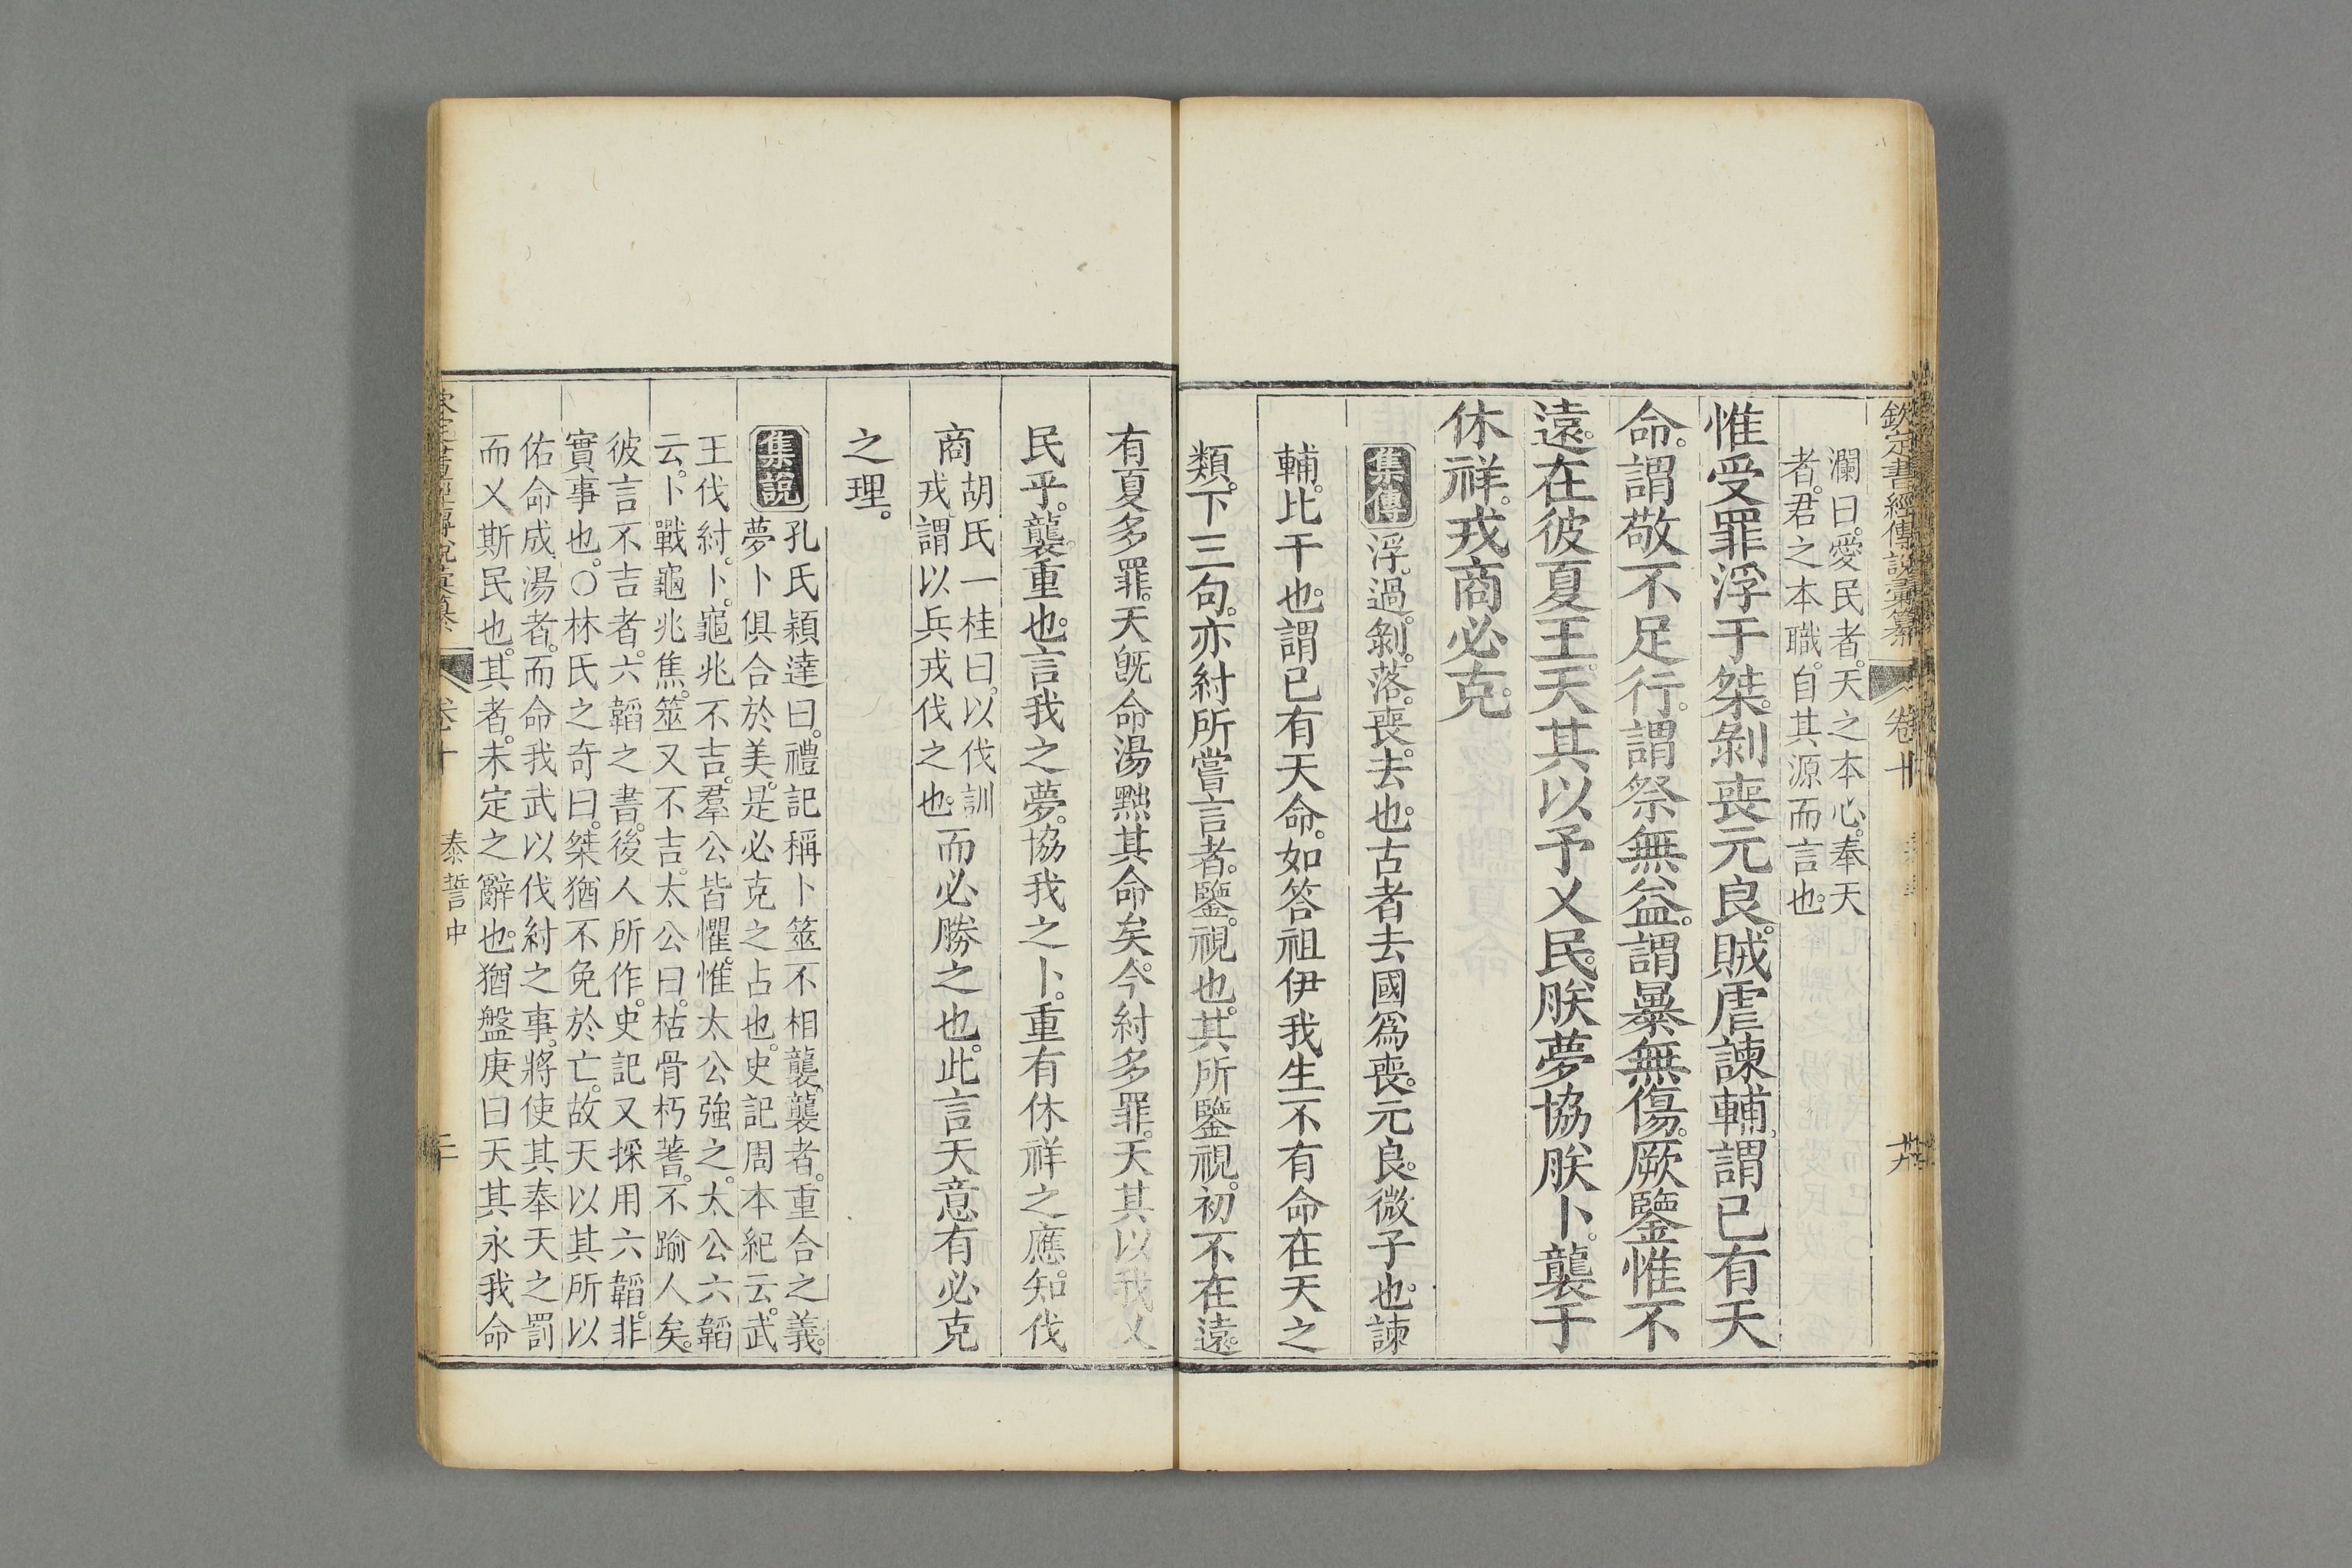 欽定書經傳說彙纂 卷十
瀾曰。愛民者。天之本心。奉天
者。君之本職。自其源而言也。
惟受罪浮于桀。剝喪元良。賊虐諫輔。謂己有天
命。謂敬不足行。謂祭無益。謂暴無傷。厥鑒惟不
遠。在彼夏王。天其以予乂民。朕夢協朕卜。襲于
休祥。戎商必克。
集傳 浮。過。剝。落。喪。去也。古者去國爲喪。元良。微子也。諫
輔。比干也。謂已有天命。如答祖伊我生不有命在天之
類。下三句。亦紂所嘗言者。鑒。視也。其所鑒視。初不在遠。
有夏多罪。天旣命湯黜其命矣。今紂多罪。天其以我乂
民乎。襲。重也。言我之夢。協我之卜。重有休祥之應。知伐
商
胡氏一桂曰。以伐訓
戎。謂以兵戎伐之也。
而必勝之也。此言天意有必克
之理。
集說 孔氏穎達曰。禮記稱卜筮不相襲。襲者。重合之義。
夢卜俱合於美。是必克之占也。史記周本紀云。武
王伐紂。卜。龜兆不吉。羣公皆懼。惟太公強之。太公六韜
云。卜戰龜兆焦。筮又不吉。太公曰。枯骨朽蓍。不踰人矣。
彼言不吉者。六韜之書。後人所作。史記又採用六韜。非
實事也。○林氏之奇曰。桀猶不免於亡。故天以其所以
佑命成湯者。而命我武以伐紂之事。將使其奉天之罰
而乂斯民也。其者。未定之辭也。猶盤庚曰天其永我命
卷十 泰誓中